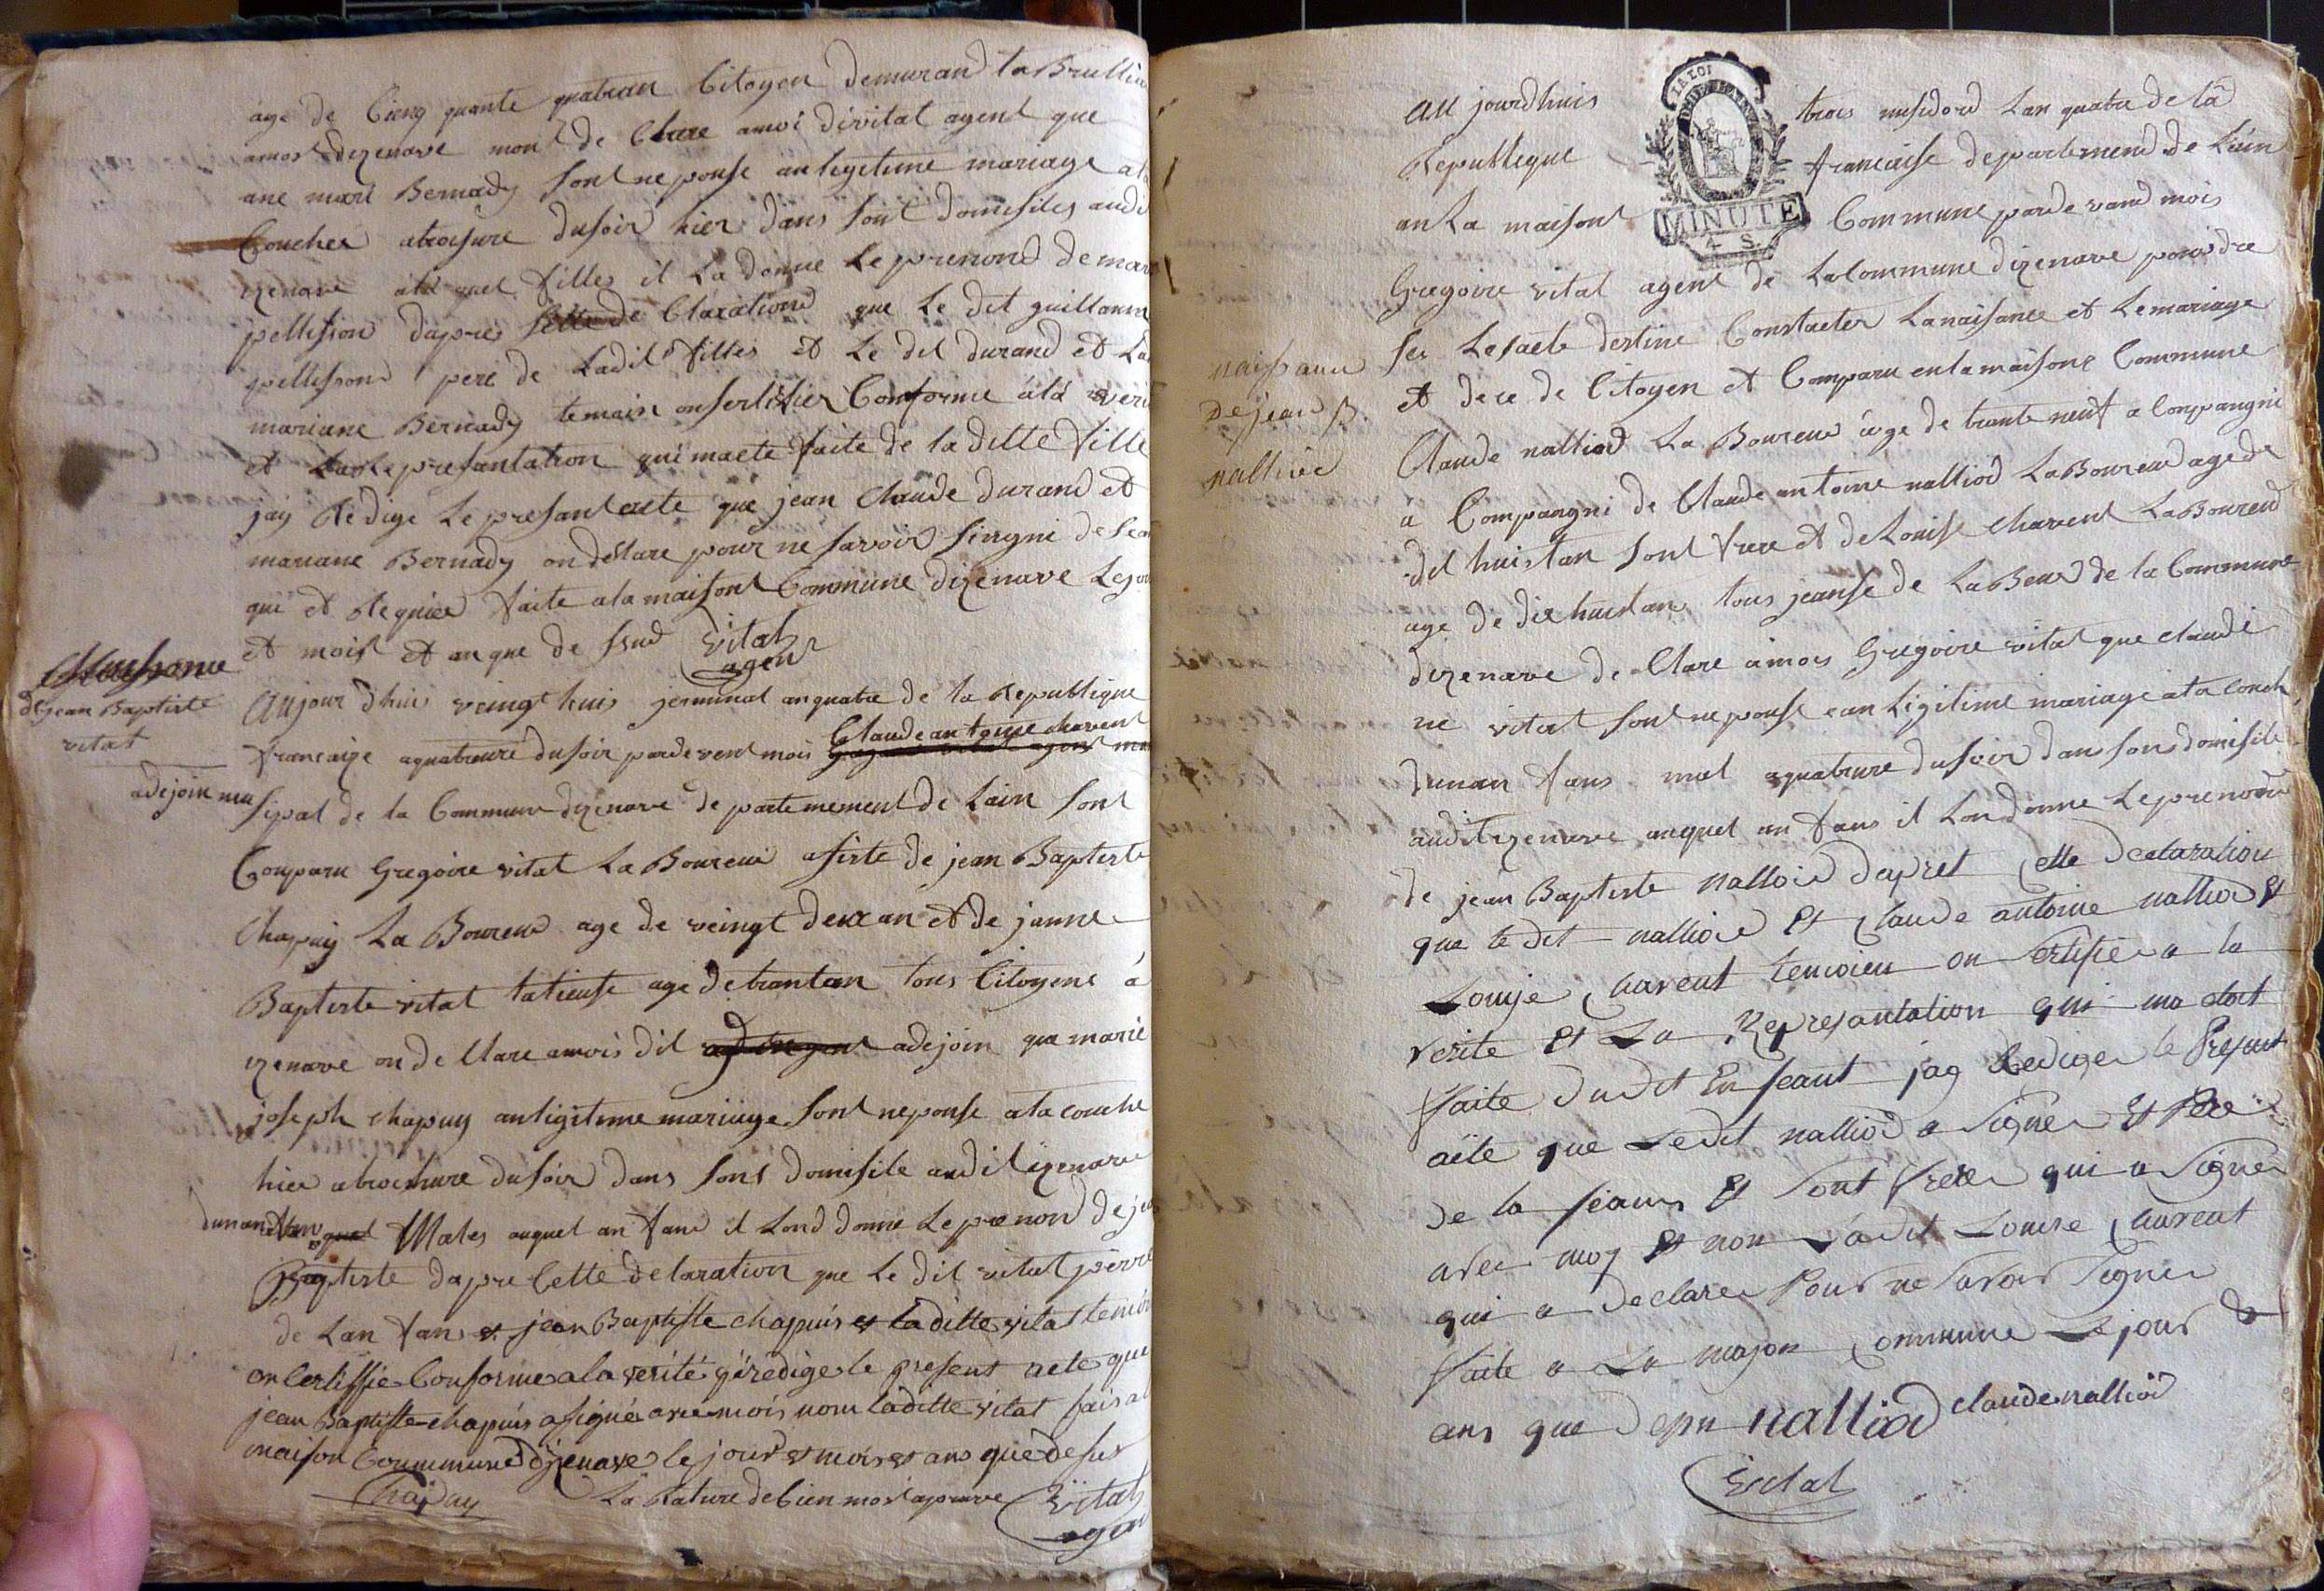 age de Cienq quante quatran Citoyen demurand
amort dizenave mont de Clare amoi divitat agent que
ane mari Bernady sont neponse an legitime mariage
Couchee atroisure du soir hier dans sont domisiles audi
izenave ala quel filles il La donne Le prenond de mari
pellision dapres Claration que Le dit guillaum
pellissond pere de Ladit filles et Le dit durand et La
mariane Bernady temain on sertifier Conforme a la veri
et La Represantation qui maete faite de la ditte fille
jay Redige Le presant acte que jean Claude durand et
mariane Bernady on declare pour ne savoir singni de
qui et Requier faite a la maisont Commune dizenave Le
et moist et an que de sud Vital
agent
Naissance
de jean Baptiste
vital
Aujour dhuis veingt huis jerminal an quatre de la Republique
francaize a quatreure du soir pardevent mois Claude antoine charent
adejoin mu
sipal de la Commune dizenave departemement de Lain sont
Comparu Gregoire vital La Boureur asiste de jean Baptiste
Chapuy La Boureur age de veingt deux an et de janne
Baptiste vital tatieuse age de trantan tous Citoyens a
izenave on de Clare amois dit adejoin que marie
joseph chapuy an ligitime mariage sont neponse a la couche
hier atroishure du soir dans sont domisile audit izenave
dunan fans Males auquel an fans il Lond donne Le prenond de
Baptiste dapre Cette declaration que Le dit vital perre
de Lan fans et jean Baptiste chapuis et la ditte vital temoin
on Certiffie Conforme a la verité j'ai redige le present acte que
jean Baptiste chapuis a signé avec mois nom la ditte vital fais a
maison Commune d'izenave le jour et mois et ans que desus
Chapuy La Rature de Cien mos apreuve Vital
agent
LA LOI
MINUTE
4 S.
Au jourdhuis trois mesidord Lan quatre de la
Republique francaise departemend de Lain
an La maisont Commune parde vand mois
Gregoire vital agent de La Commune dizenave pour dre
naissance
De jean B.
nalliod
ser Les acte destine Constacter La naisance et Le mariage
et dece de Citoyen et Comparu en la maisont Commune
Claude nalliod La Boureur age de trante neuf a Compangni
a Compangni de Claude antoine nalliod La Boureur age de
dit huis tan sont frere et de Louise Charent La Boureur
age de dix huis tan tous jeanse de La Beur de la Commune
dizenave de Clare a mois Gregoire vital que claudi
ne vital sont neponse ean Ligitime mariage a la couch
dunan fans mal a quatrure du soir dans son domisile
audit izenave auquel an fans il Lon donne Le prenom
de jean Baptiste nalliod dapret Cette declaration
que le dit nalliod et Claude antoine nalliod et
Louise Charent temoien on sertifier a la
verite et La Represantation qui ma etoit
faite dudit Enfeant jay Rediger le Present
acte que Le dit nalliod a Signer et Pere
de la feans et sont frere qui a Signer
avec moy et non Ladit Louise Charent
qui a declarer Pour ne Savoir Signer
faite a La majon Commune Le jour &
ans que depu nalliod claude nalliod
Vital